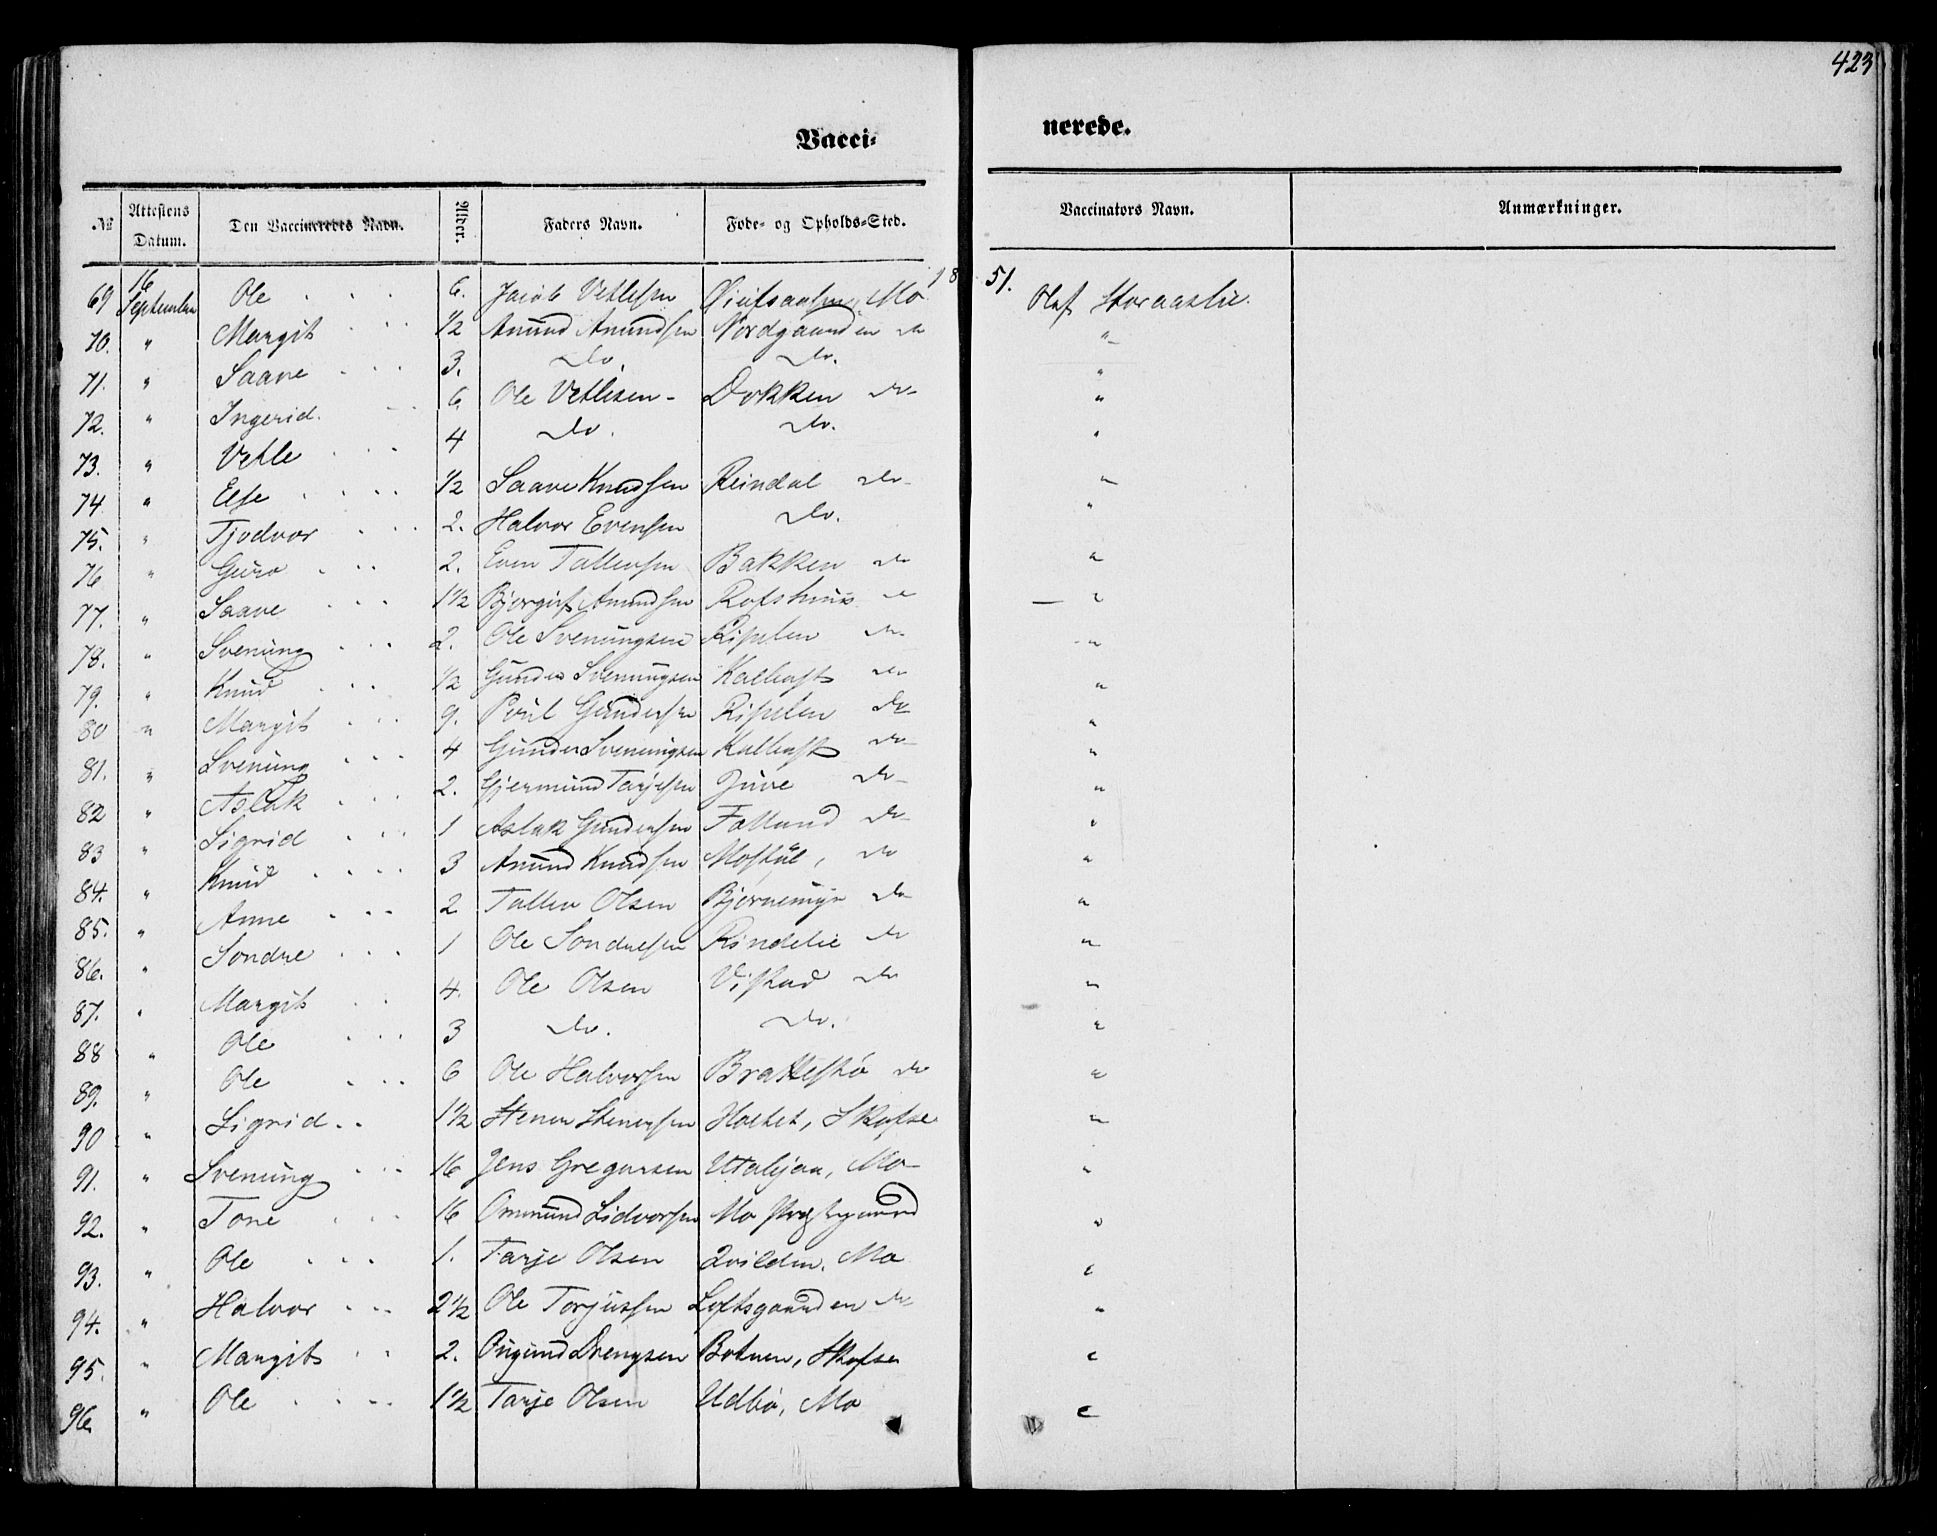 423
Vacci- nerede.
№ Attestens Datum. Den Vaccineredes Navn. Alder. Faders Navn. Føde- og Opholds-Sted. Vaccinators Navn. Anmærkninger.
1851.
69 16 September Ole 6. Jacob Vetlesen Mo Olaf Storaaslie.
70. " Margit 1/2 Anund Anundsen Nordgaarden do "
71. " Saave 3. do. do. "
72. " Ingerid. 6. Ole Vetlesen - Dokken do "
73. " Vetle 4 do. do. "
74 " Else 1/2 Saave Knudsen Reindal do "
75. " Tjodvor 2. Halvor Evensen do. "
76 " Guro 2. Even Tallevsen Bakken do "
77. " Saave 1 1/2 Bjørgulf Anundsen Rofshuus do "
78. " Svenung 2. Ole Svenungsen Ripelen do "
79. " Knud 1/2 Gunder Svenungsen Kalhaft do "
80 " Margit 9. Poul Gundersen Ripelen do "
81. " Svenung 4 Gunder Svenungsen Kalhaft do "
82 " Aslak 2. Gjermund Tarjesen Juve do "
83 " Sigrid 1 Aslak Gundersen Falland do "
84. " Knud 3 Anund Knudsen Moskul, do "
85. " Anne 2 Tallev Olsen Bjørnemyr do "
86. " Sondre 1 Ole Sondresen Rindelie do "
87. " Margit 4. Ole Olsen Vistad do "
88 " Ole 3 do. do. "
89. " Ole 6 Ole Halvorsen Bratteskø do "
90 " Sigrid 1 1/2 Stener Stenersen Holtet, Skafse "
91. " Svenung 16 Jens Gregarsen Utalijaa, Mo "
92. " Tone 16 Ommund Lidvorsen Mo Præstegaard "
93. " Ole 1. Tarje Olsen Qvilden. Mo "
94. " Halvor 2 1/2 Ole Torjussen Loftsgaarden do "
95. " Margit 2. Augund Drengsen Botnen, Skafse "
96. " Ole 1 1/2 Tarje Olsen Udbø, Mo "